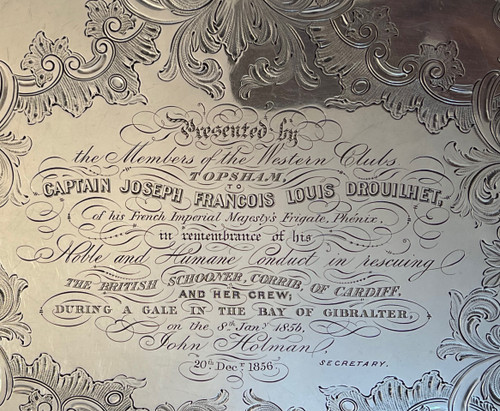 Presented by
the Members of the Western Clubs
TOPSHAM,
TO
CAPTAIN JOSEPH FRANCOIS LOUIS DROUILHET,
of his French Imperial Majesty's Frigate, Phénix,
in remembrance of his
Noble and Humane Conduct in rescuing
THE BRITISH SCHOONER, CORRIB, OF CARDIFF,
AND HER CREW;
DURING A GALE IN THE BAY OF GIBRALTER,
on the 8th Jany 1856,
John Holman
SECRETARY.
20th Decr 1856